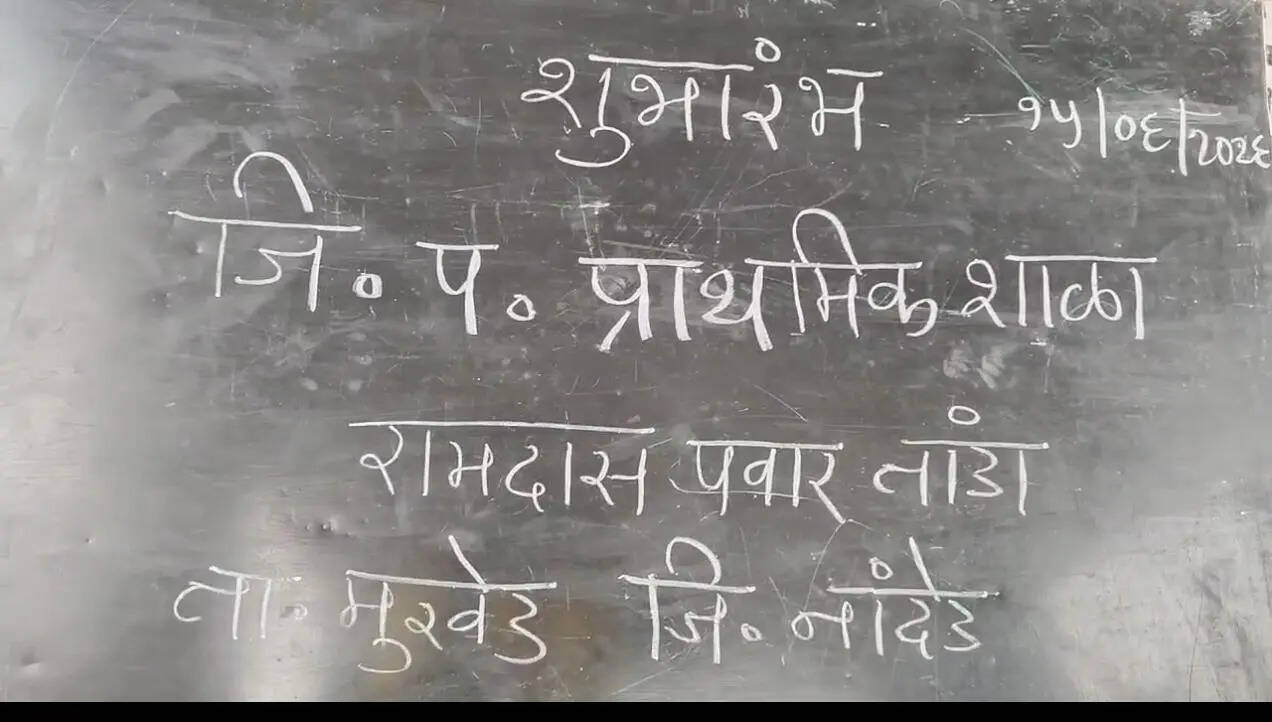 शुभारंभ १५/०६/२०२६
जि. प. प्राथमिक शाळा
रामदास पवार तांडा
ता. मुखेड जि. नांदेड